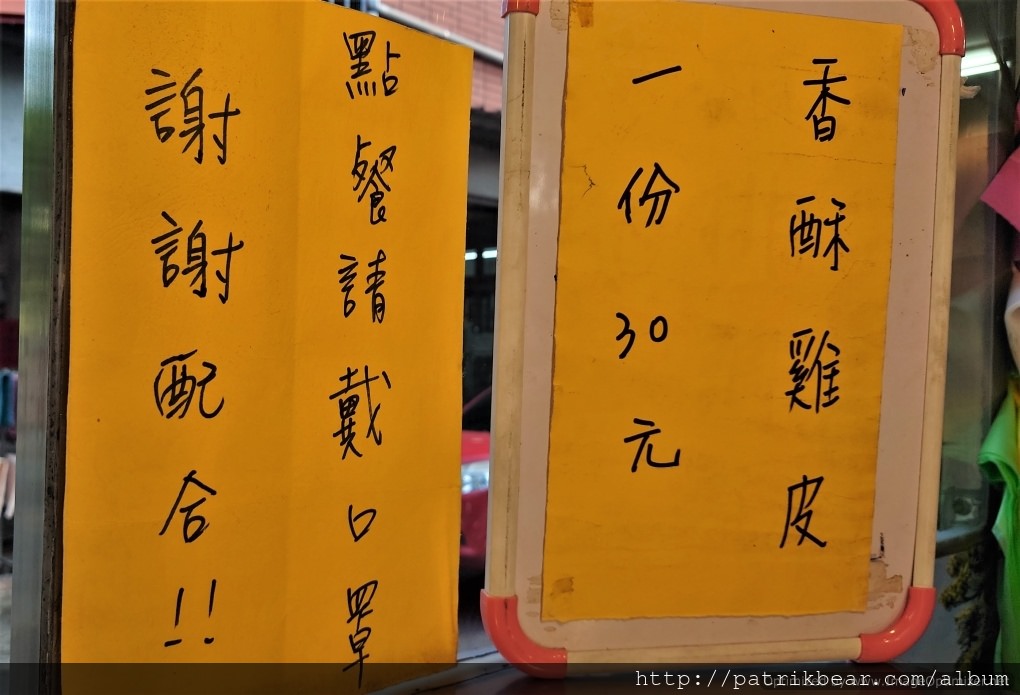 香酥雞皮
一份30元
點餐請戴口罩
謝謝配合!!
http://patrikbear.com/album